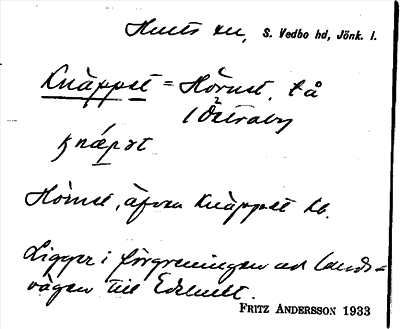 Hults sn, S. Vedbo hd, Jönk. l.
Knäppet = Hörnet, t å
i Östraby
Hörnet, äfven Knäppet kb.
Ligger i förgreningen av lands-
vägen till Edshult.
FRITZ ANDERSSON 1933